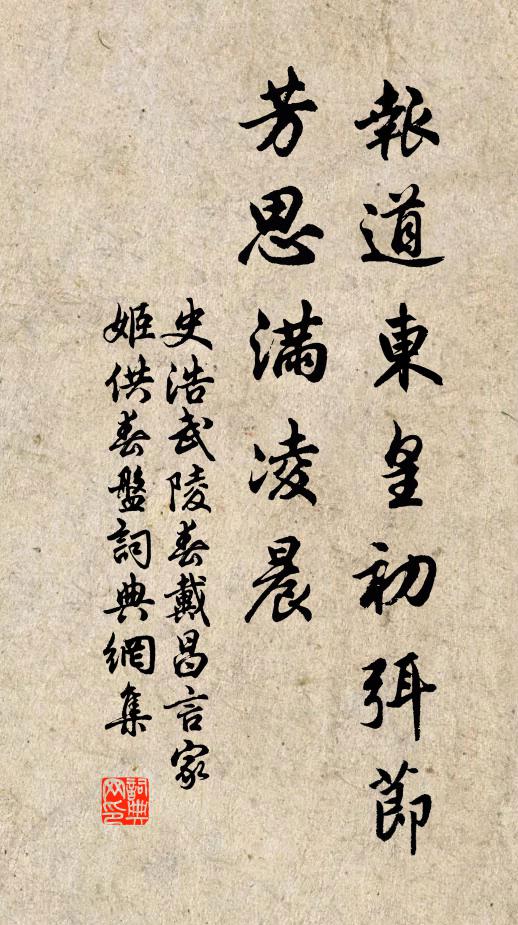 報道東皇初弭節
芳思滿凌晨
史浩武陵春戴昌言家
姬供春盤詞典網集
詞典
网印